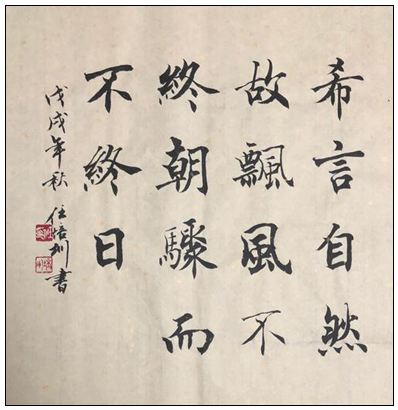 希言自然
故飄風不
終朝驟而
不終日
戊戌年秋 任 書